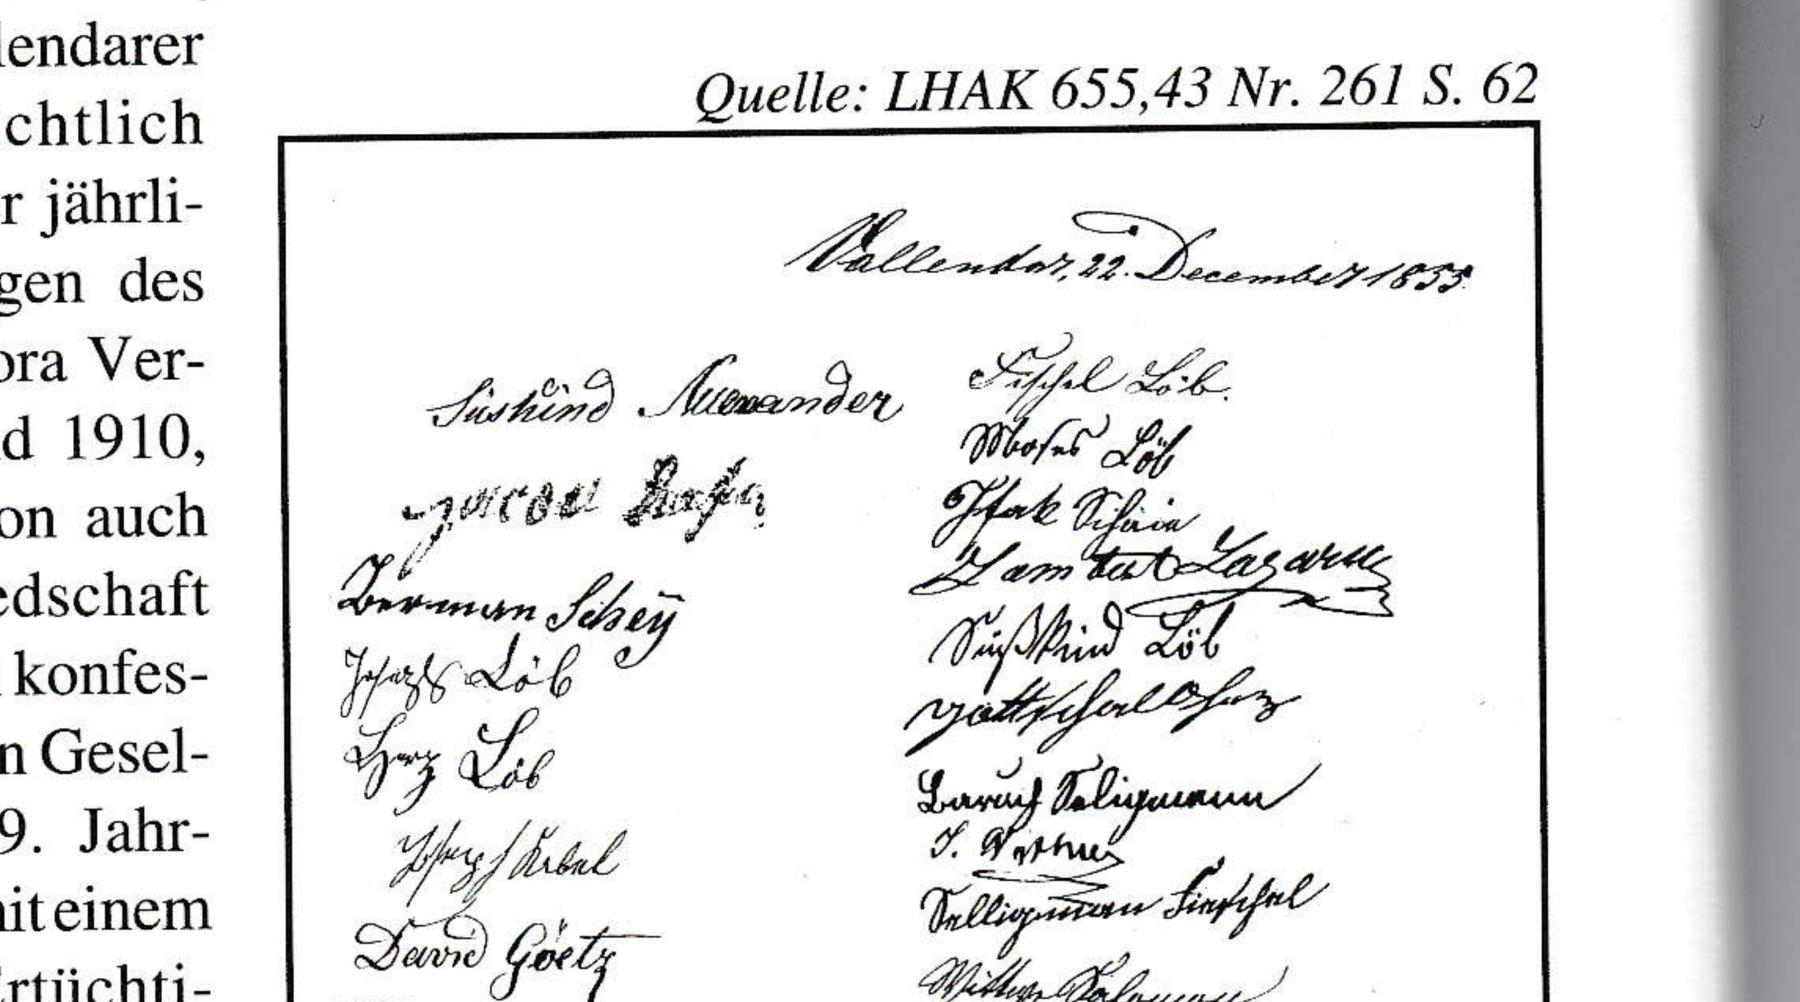 lendarer
chtlich
r jährli-
gen des
ora Ver-
d 1910,
on auch
edschaft
konfes-
n Gesel-
9. Jahr-
mit einem
Ertüchti-
Quelle: LHAK 655,43 Nr. 261 S. 62
Vallendar, 22. December 1855
Süskind Alexander
Jacob
Herman Scheÿ
Joseph Löb
Herz Löb
Joseph
David Göetz
Fischel Löb.
Moses Löb
Isak
Lambert Lazarus
Süßkind Löb
Gottschal
Baruch Seligmann
J.
Selligmann Fieschel
Wittwe Salomon